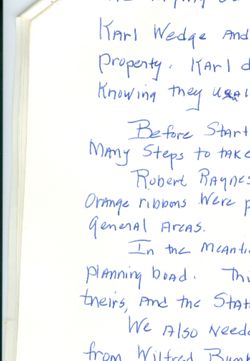 Karl Wedge and
property. Karl d
Knowing they usual
Before Start
Many Steps to take
Robert Raynes
orange ribbons were p
general areas.
In the Meanti
planning board. Thi
theirs, and the Stat
We Also Neede
from Wilfred